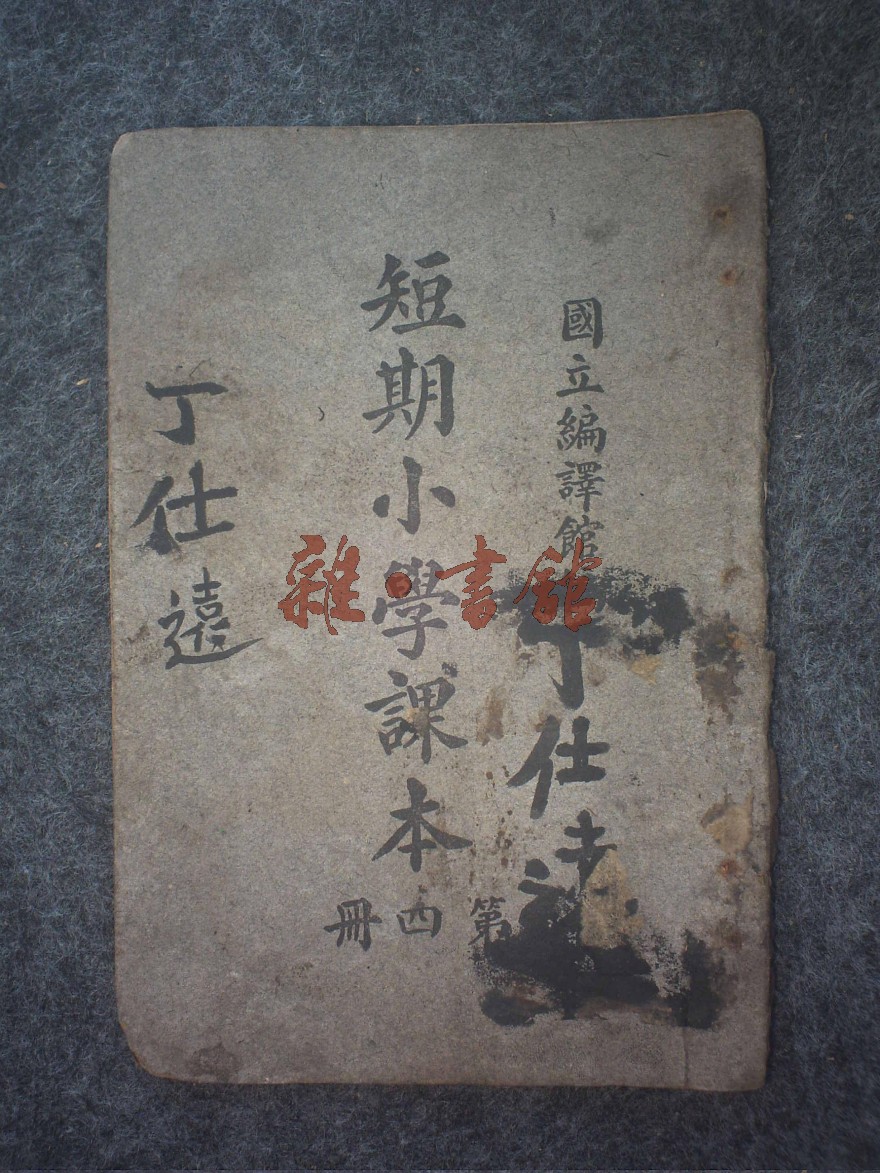 國立編譯館
丁仕遠
短期小學課本
第四冊
丁仕遠
雜·書館